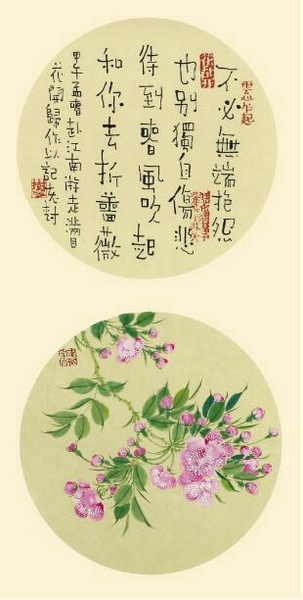 不必無端抱怨
也别獨自傷悲
待到春風吹起
和你去折薔薇
甲午孟春赴江南游走满目
花開歸作以記